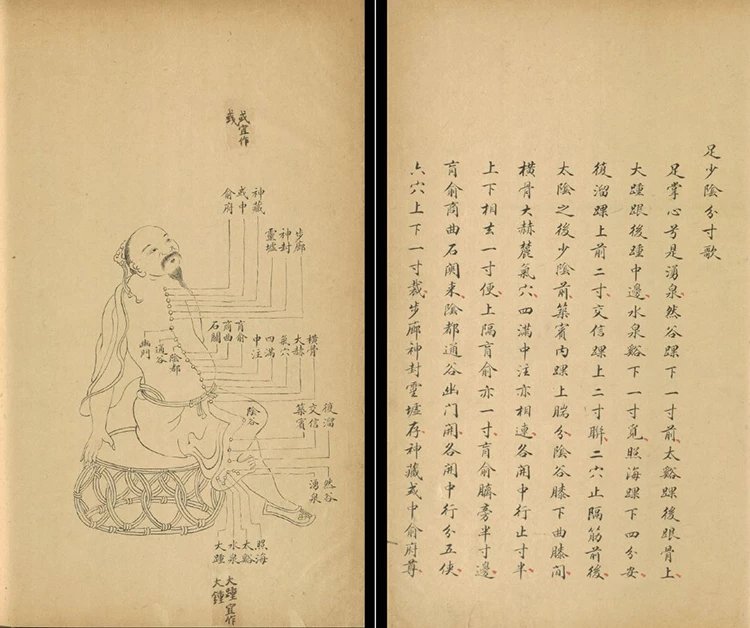 足少陰分寸歌
足掌心兮是湧泉然谷踝下一寸前太谿踝後跟骨上
大踵跟後踵中邊水泉谿下一寸覓照海踝下四分安
復溜踝上前二寸交信踝上二寸聯二穴止隔筋前後
太陰之後少陰前築賓內踝上腨分陰谷膝下曲膝間
橫骨大赫麓氣穴四滿中注亦相連各開中行止寸半
上下相去一寸便上隔肓俞亦一寸肓俞臍旁半寸邊
肓俞商曲石關來陰都通谷幽門開各開中行分五俠
六穴上下一寸裁步廊神封靈墟存神藏或中俞府尊
宜作
神藏
或中
俞府
步廊
神封
靈墟
橫骨
大赫
氣穴
四滿
中注
肓俞
商曲
石關
陰都
通谷
幽門
復溜
交信
築賓
陰谷
然谷
湧泉
照海
太谿
水泉
大踵
大踵宜作
大鍾